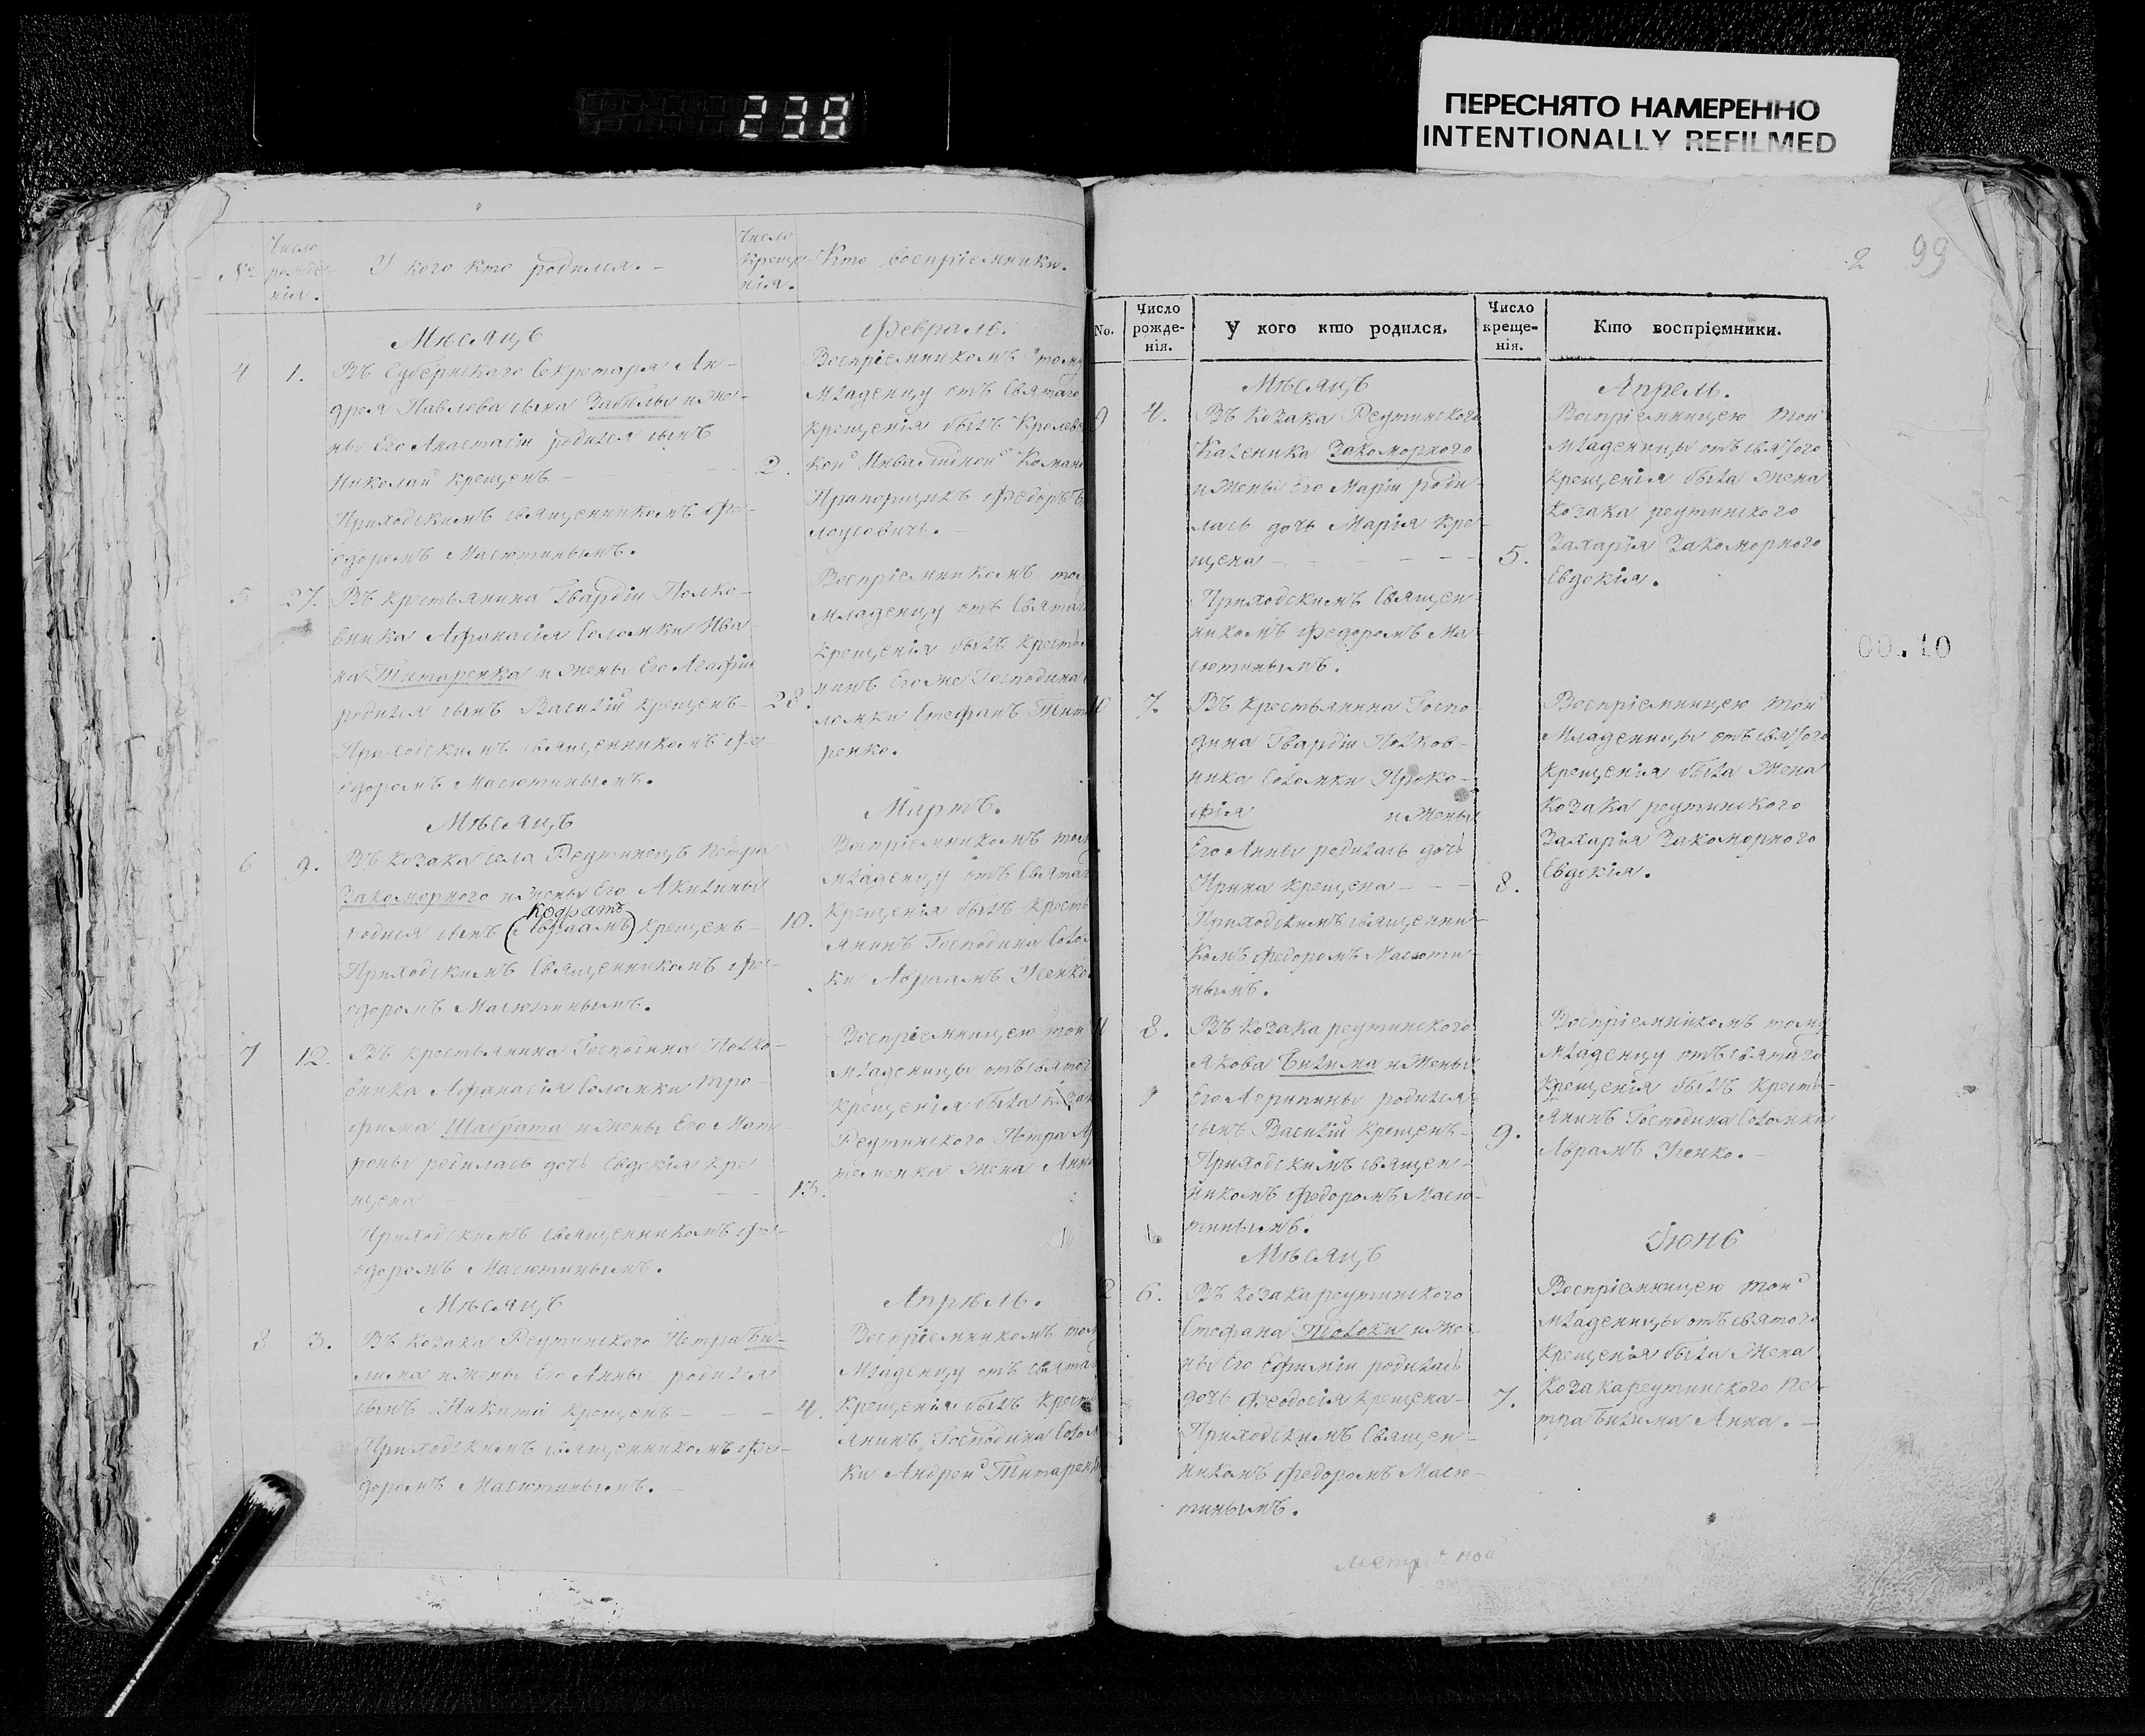 238
ПЕРЕСНЯТО НАМЕРЕННО
INTENTIONALLY REFILMED
№
Число рожде-
нія.
У кого кто родился. –
Число
креще-
нія.
Кто воспріемники.
Мѣсяцъ
Февраль.
4
1.
Въ Губернскаго Секретаря Ан-
дрея Павлова сына Забѣлы и же-
ны Его Анастасіи родился сынъ
Николай крещенъ –
2.
Приходскимъ священникомъ Фе-
одоромъ Масютинымъ.
Воспріемникомъ тому
младенцу отъ Святаго
крещенія былъ
кой Инвалидной
Прапорщикъ Федоръ
5
27.
Въ крестьянина Гвардіи Полко-
вника Афанасія Соломки Ива-
на Титаренка и жены Его Агафіи
родился сынъ Василій крещенъ –
28.
Приходскимъ священникомъ Фе-
одоромъ Масютинымъ.
Воспріемникомъ
младенцу отъ
крещенія былъ
нинъ Егоже Господина
ломки Стефанъ Тита
ренко.
Мѣсяцъ
Мартъ.
6
9.
Въ козака села Реутинецъ Петра
Закоморного и жены Его Акилины
Кодратъ
родися сынъ (Авраамъ) крещенъ –
10.
Приходскимъ Священникомъ Фе-
одоромъ Масютинымъ.
Воспріемникомъ
младенцу отъ
крещенія былъ кресть
янинъ Господина Солом
ки Авраамъ Усенко
7
12.
Въ крестьянина Господина Полко-
вника Афанасія Соломки Тро-
фима Шабрата и жены Его Мат-
роны родилась дочь Евдокія кре
щена –
13.
Приходскимъ священникомъ Фе-
одоромъ Масютинымъ.
Воспріемницею той
младеницы отъ
крещенія была
Реутинского Петра
жена Анна
Мѣсяцъ
Апрѣль.
8
3.
Въ козака Реутинского Петра Би-
лима и жены Его Анны родился
сынъ Никита крещенъ –
4.
Приходскимъ священникомъ Фео-
доромъ Масютинымъ. –
Воспріемникомъ
младенцу отъ
крещенія былъ кресть
янинъ Господина Солом
ки Андрей Титаренк
2 99
No.
Число
рожде-
нія.
У кого кто родился.
Число
креще-
нія.
Кто воспріемники.
Мѣсяцъ
Апрель.
9
4.
Въ козака Реутинского
Каленика Закоморного
и жены Его Маріи роди
лась дочь Марія кре-
щена –
5.
Приходскимъ Священ-
никомъ Федоромъ Ма-
сютинымъ.
Воспріемницею той
младеницы отъ святого
крещенія была жена
козака реутинского
Захарія Закоморного
Евдокія.
00.10
10
7.
Въ крестьянина Госпо
дина Гвардіи Полков-
ника Соломки Проко-
фія и жены
Его Анны родилась дочь
Ирина крещена –
8.
Приходскимъ священни-
комъ Федоромъ Масюти-
нымъ.
Воспріемницею той
Младеницы отъ святого
крещенія была жена
козака реутинского
Захарія Закоморного
Евдокія.
11
8.
Въ козака реутинского
Якова Билима и жены
Его Агрипины родился
сынъ Василій крещенъ –
9.
Приходскимъ священ-
никомъ Федоромъ Масю-
тинымъ.
Воспріемникомъ тому
младенцу отъ святаго
крещенія былъ кресть-
янинъ Господина Соломки
Аврамъ Усенко. –
Мѣсяцъ
Іюнь
2
6.
Въ козака реутинского
Стефана Толоки и же-
ны Его Ефиміи родилась
дочь Феодосія крещена –
7.
Приходскимъ Священ-
никомъ Федоромъ Масю-
тинымъ.
Воспріемницею той
младеницы отъ святого
крещенія была жена
козака реутинского Пе-
тра Билима Анна. –